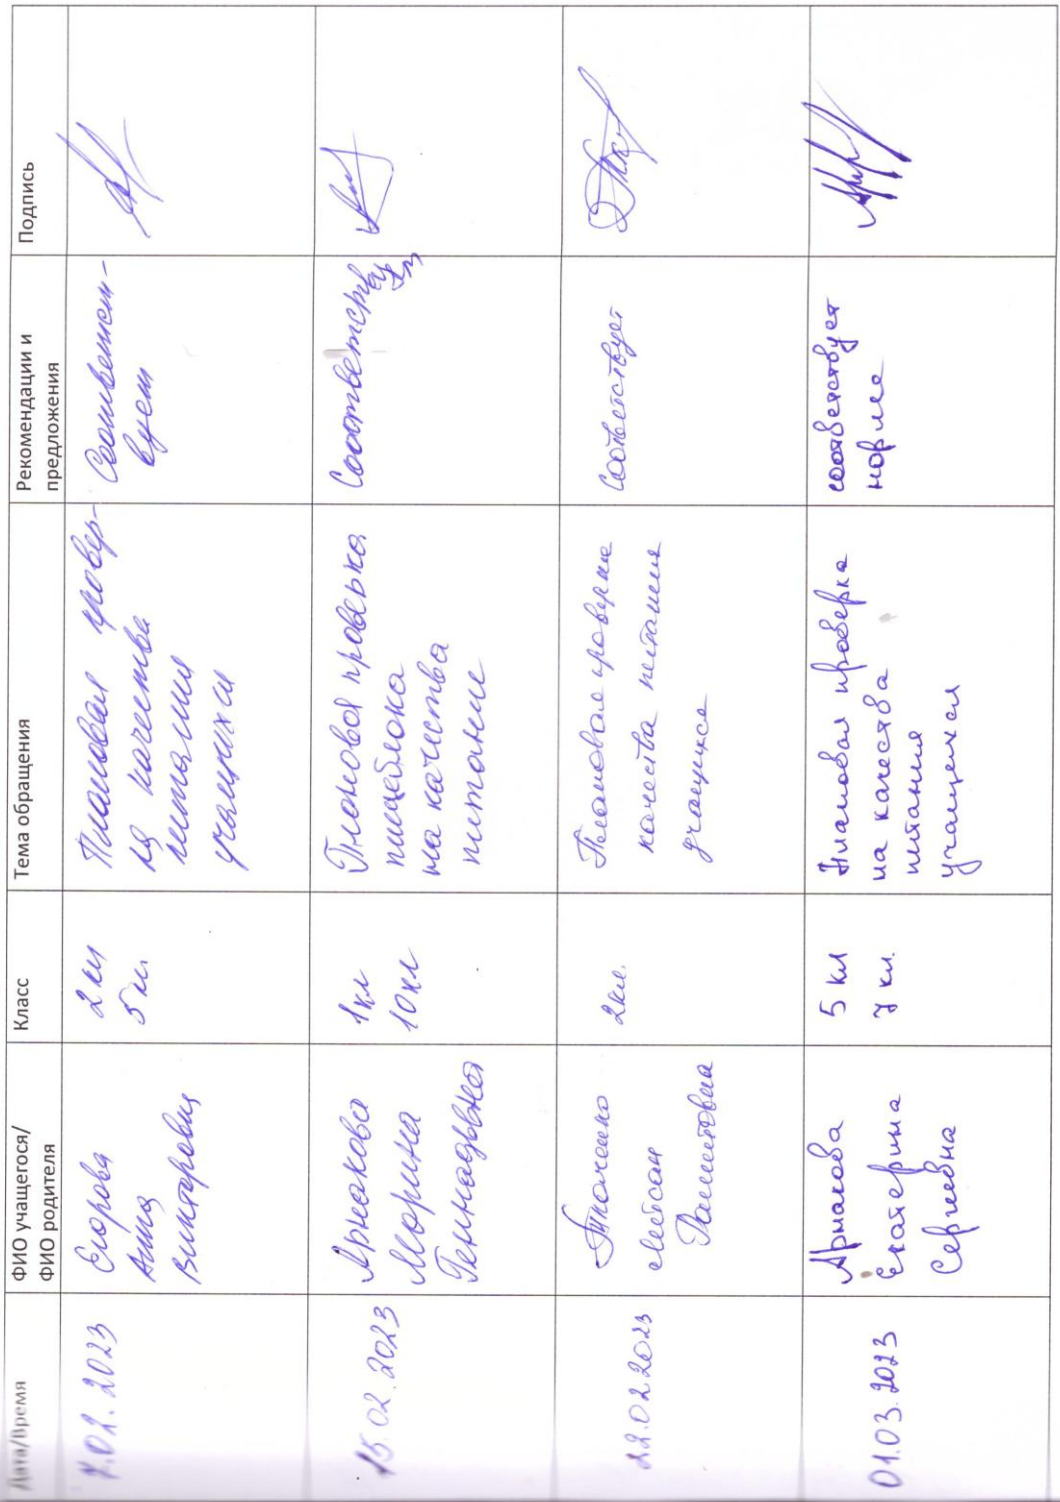 Дата/Время
ФИО учащегося/
ФИО родителя
Класс
Тема обращения
Рекомендации и
предложения
Подпись
7.02.2023
Егорова
Анна
Викторовна
2 кл
5 кл.
Плановая провер-
ка качества
питания
учащихся
Соответст-
вует
15.02.2023
Аржакова
Марина
Геннадьевна
1кл
10кл
Плановая проверка
пищеблока
на качества
питание
Соответствует
22.02.2023
Ткаченко
Лейсан
2кл.
Плановая проверка
качества питания
учащихся
Соответствует
01.03.2023
Екатерина
Сергеевна
5 кл
7 кл.
проверка
на качества
питания
учащихся
соответствует
норме